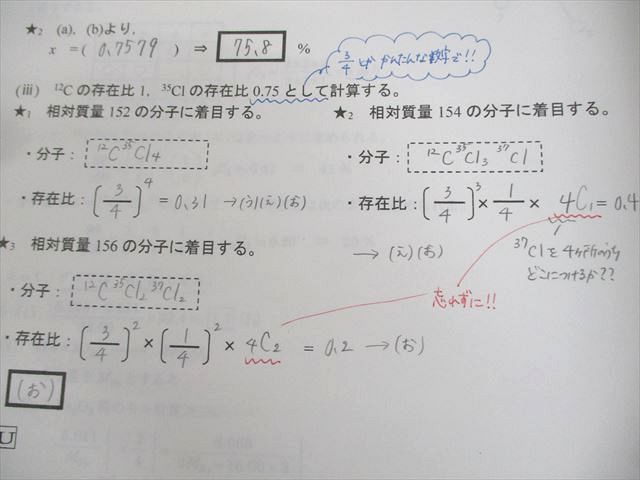 ★₂ (a), (b)より,
x = ( 0.7579 ) ⇒ 75.8 %
3/4 とか かんたんな数字で!!
(iii) ¹²Cの存在比 1, ³⁵Clの存在比 0.75 として計算する。
★₁ 相対質量 152 の分子に着目する。
・分子: ¹²C³⁵Cl₄
・存在比: (3/4)⁴ = 0.31 → (う)(え)(お)
★₂ 相対質量 154 の分子に着目する。
・分子: ¹²C³⁵Cl₃³⁷Cl
・存在比: (3/4)³ × 1/4 × ₄C₁ = 0.4
→ (え)(お)
³⁷Clを4ヶ所のうち
どこにつけるか??
忘れずに!!
★₃ 相対質量 156 の分子に着目する。
・分子: ¹²C³⁵Cl₂³⁷Cl₂
・存在比: (3/4)² × (1/4)² × ₄C₂ = 0.2 → (お)
(お)
U